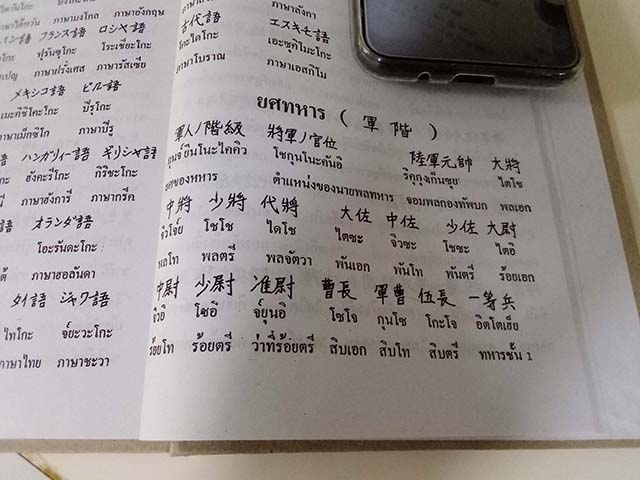 ภาษาไต้หวัน ภาษามงโกล ภาษาอังกฤษ
フランス語 ロシヤ語
ฟุรันซุโกะ โระเซี่ยะโกะ
ภาษาฝรั่งเศส ภาษารัสเซีย
メキシコ語 ピルー語
เมะคิซิโคะโกะ ปีรูโกะ
ภาษาเม็กซิโก ภาษาปีรู
ハンガリィー語 ギリシャ語
ฮังคะรีโกะ กิริซะโกะ
ภาษาฮังการี ภาษากรีค
オランダ語
โอะรันดะโกะ
ภาษาฮอลันดา
タイ語 ジャワ語
ไทโกะ จ์ยะวะโกะ
ภาษาไทย ภาษาชะวา
ภาษาลังกา
古代語 エスキモ語
โกะไดโกะ เอะซุกิโมะโกะ
ภาษาโบราณ ภาษาเอสกิโม
ยศทหาร ( 軍階 )
軍人ノ階級 将軍ノ官位 陸軍元帥 大將
กุนจ์ยินโนะไคคิว โชกุนโนะคันอิ ริคุกุงเก็นซุย ไตโช
ยศของทหาร ตำแหน่งของนายพลทหาร จอมพลกองทัพบก พลเอก
中將 少將 代將 大佐 中佐 少佐 大尉
จิวโจ์ย โชโช ไดโช ไตซะ จิวซะ โชซะ ไตอิ
พลโท พลตรี พลจัตวา พันเอก พันโท พันตรี ร้อยเอก
中尉 少尉 准尉 曹長 軍曹 伍長 一等兵
จิวอิ โซอิ จ์ยุนอิ โซโจ กุนโซ โกะโจ อิตโตเฮ็ย
ร้อยโท ร้อยตรี ว่าที่ร้อยตรี สิบเอก สิบโท สิบตรี ทหารชั้น 1